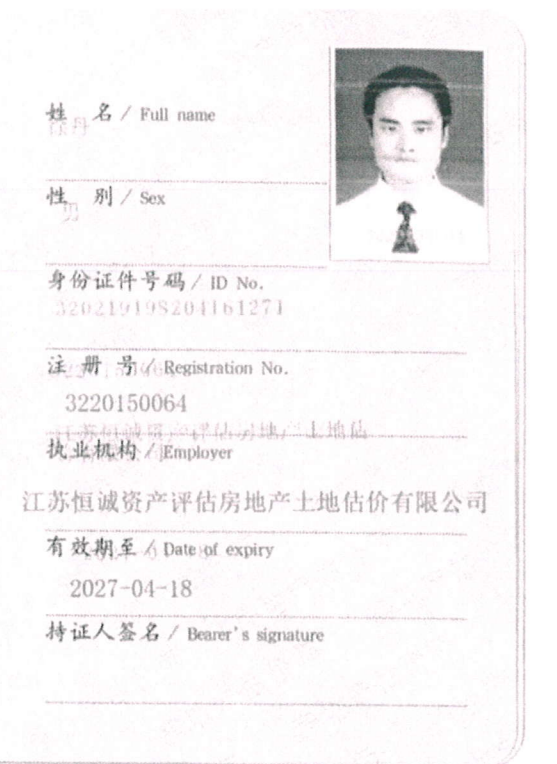 姓 名 / Full name
徐丹
性 别 / Sex
男
身份证件号码 / ID No.
320219198204161271
注 册 号 / Registration No.
3220150064
江苏恒诚资产评估房地产土地估
执业机构 / Employer
江苏恒诚资产评估房地产土地估价有限公司
有效期至 / Date of expiry
2027-04-18
持证人签名 / Bearer's signature